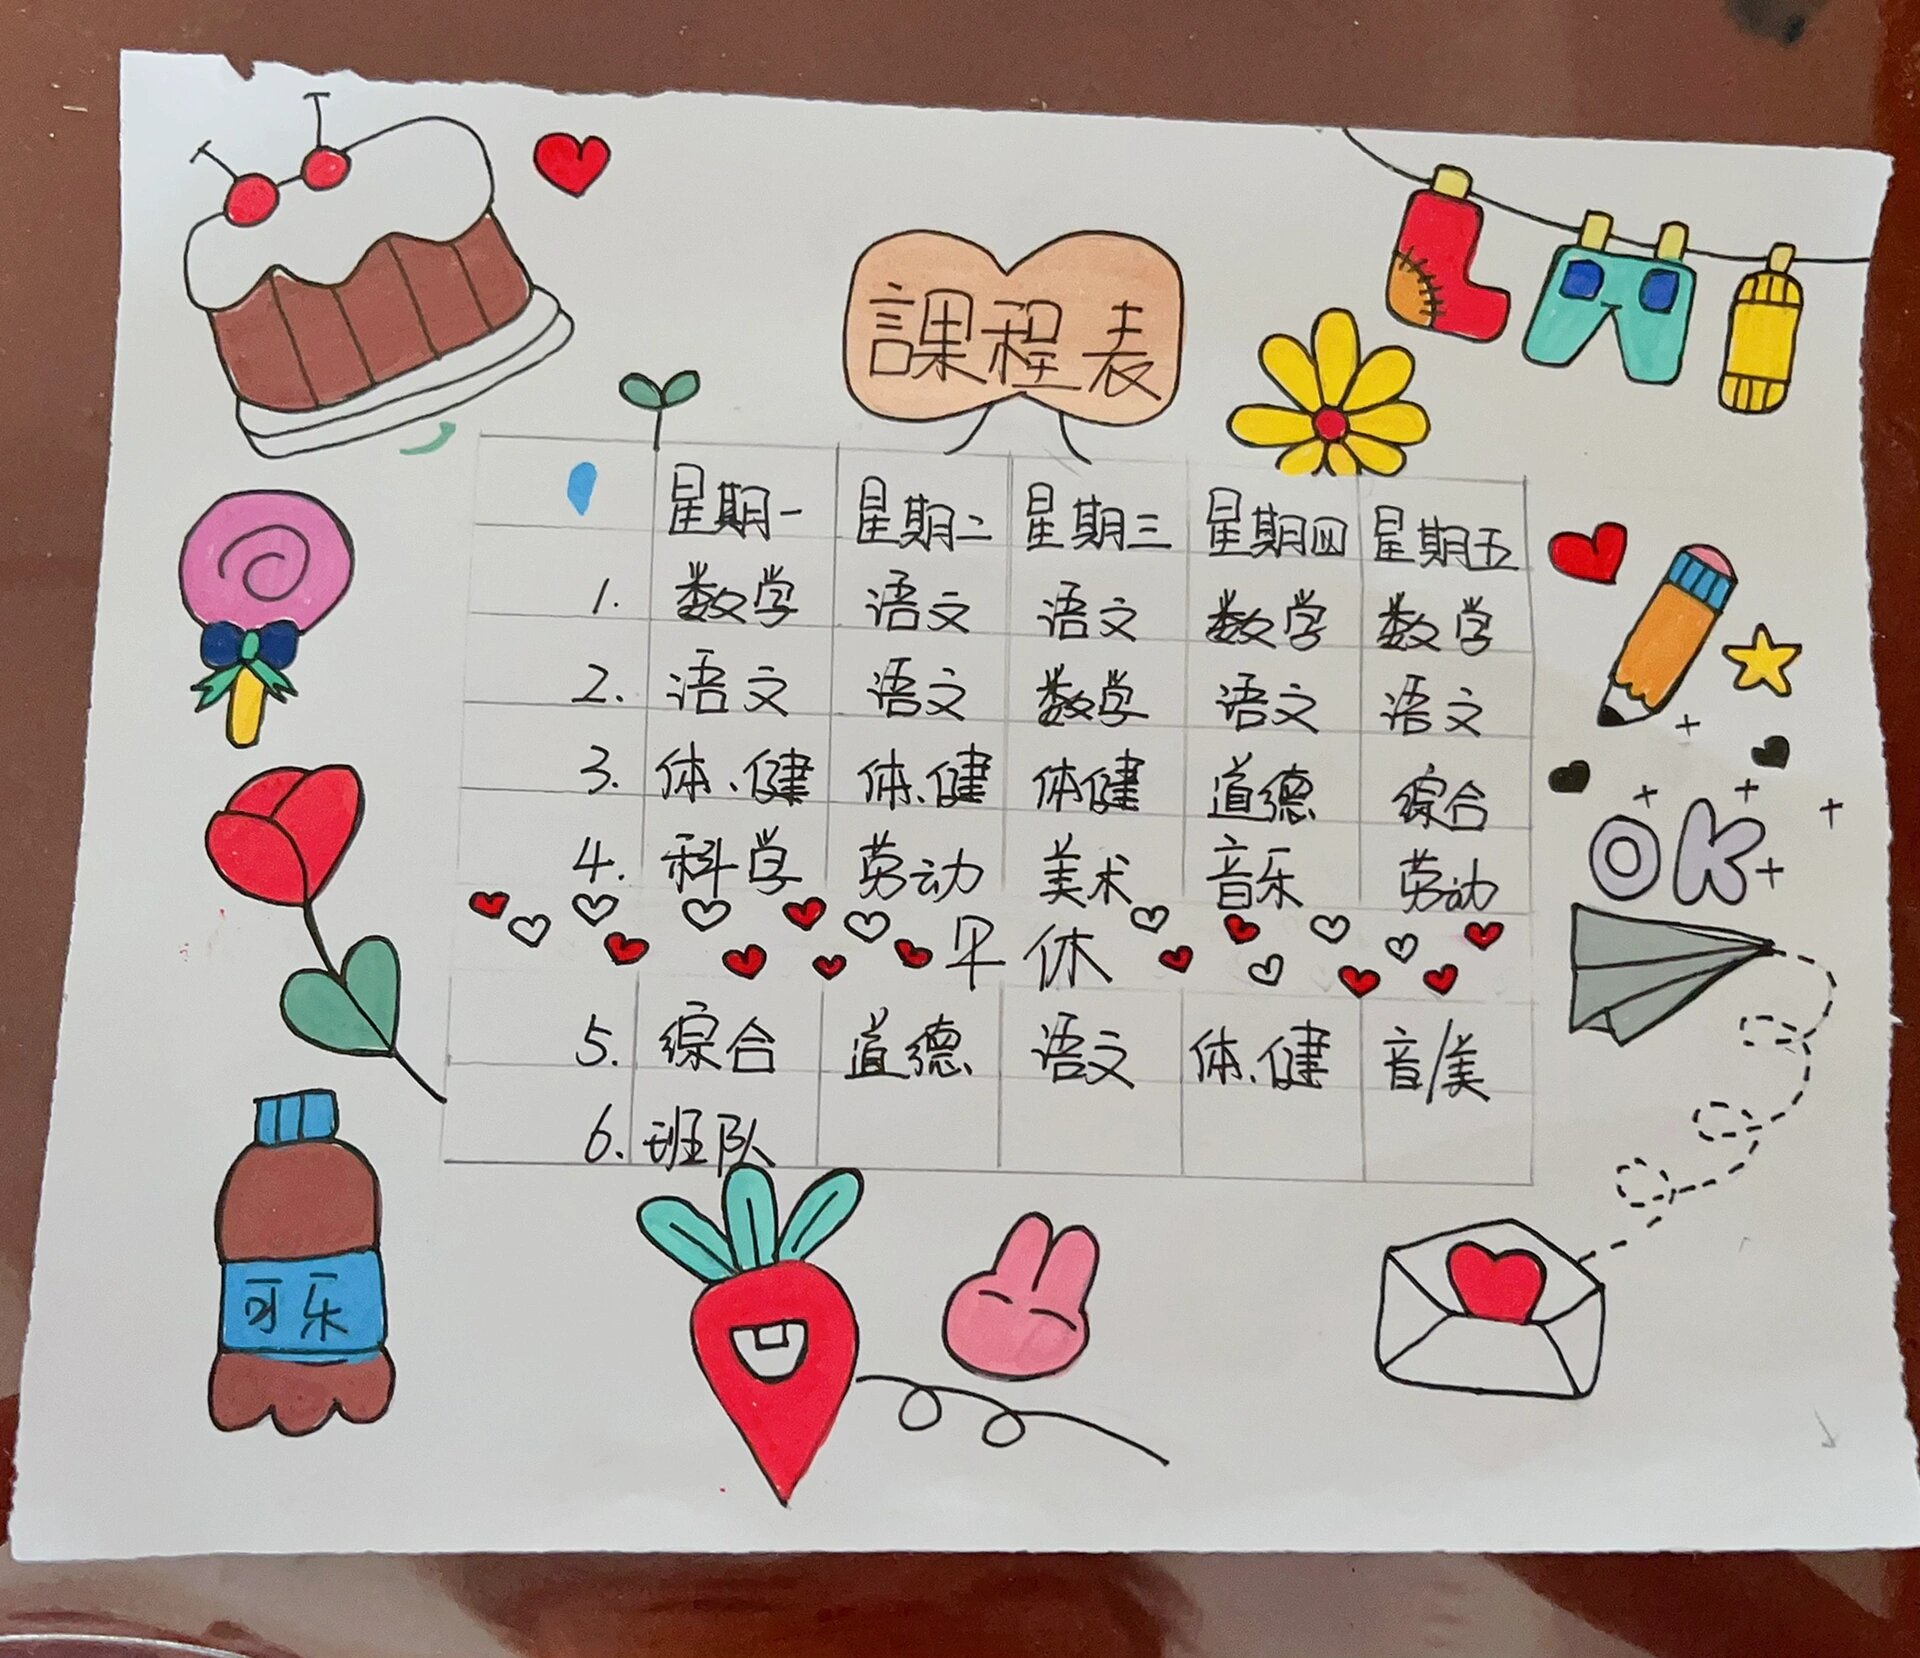 課程表
星期一 星期二 星期三 星期四 星期五
1. 数学 语文 语文 数学 数学
2. 语文 语文 数学 语文 语文
3. 体、健 体、健 体健 道德 综合
4. 科学 劳动 美术 音乐 劳动
早休
5. 综合 道德 语文 体、健 音/美
6. 班队
OK
可乐